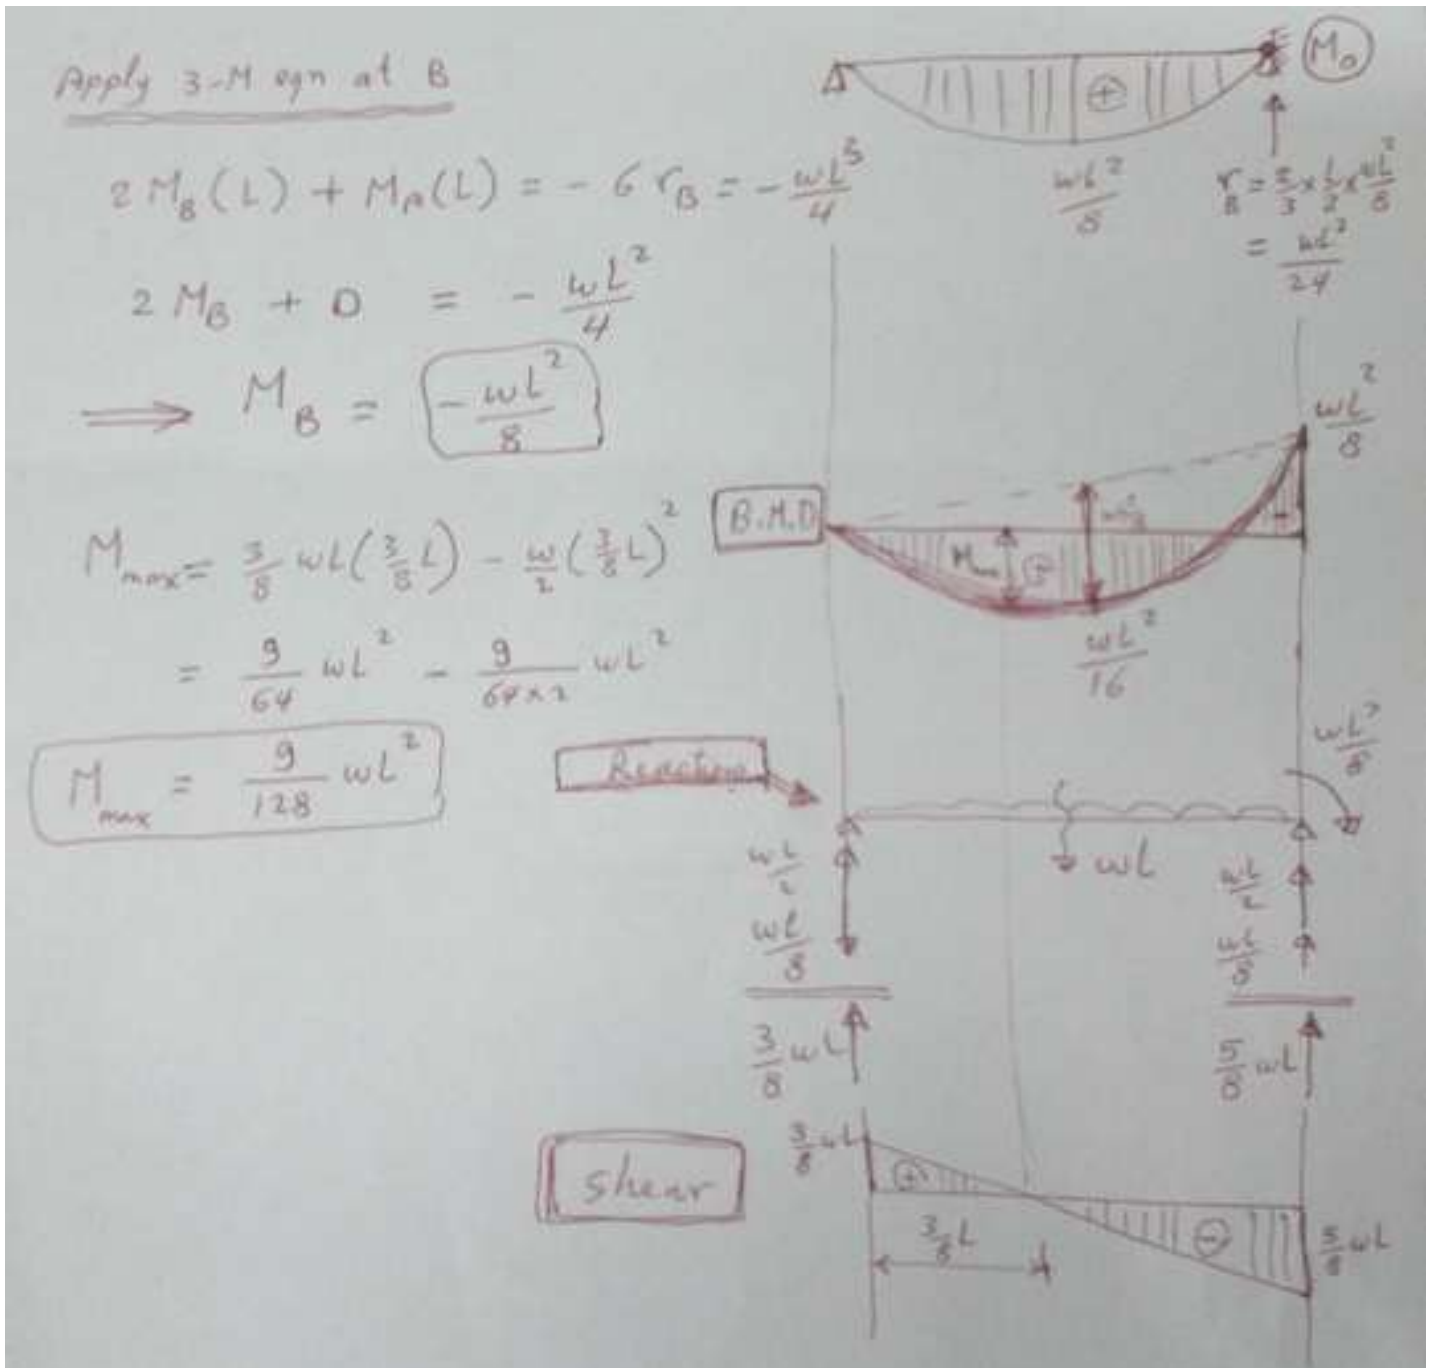 Apply 3-M eqn at B
2 M_B (L) + M_A (L) = - 6 r_B = - wL³/4
2 M_B + 0 = - wL²/4
⟹ M_B = - wL²/8
M_max = 3/8 wL (3/8 L) - w/2 (3/8 L)²
= 9/64 wL² - 9/(64×2) wL²
M_max = 9/128 wL²
M_o
+
wL²/8
r_B = 2/3 × L/2 × wL²/8
= wL²/24
wL²/8
B.M.D
M_max
+
-
wL²/16
Reactions
wL²/8
wL
wL/2
wL/2
wL/8
wL/8
3/8 wL
5/8 wL
shear
3/8 wL
+
3/8 L
-
5/8 wL